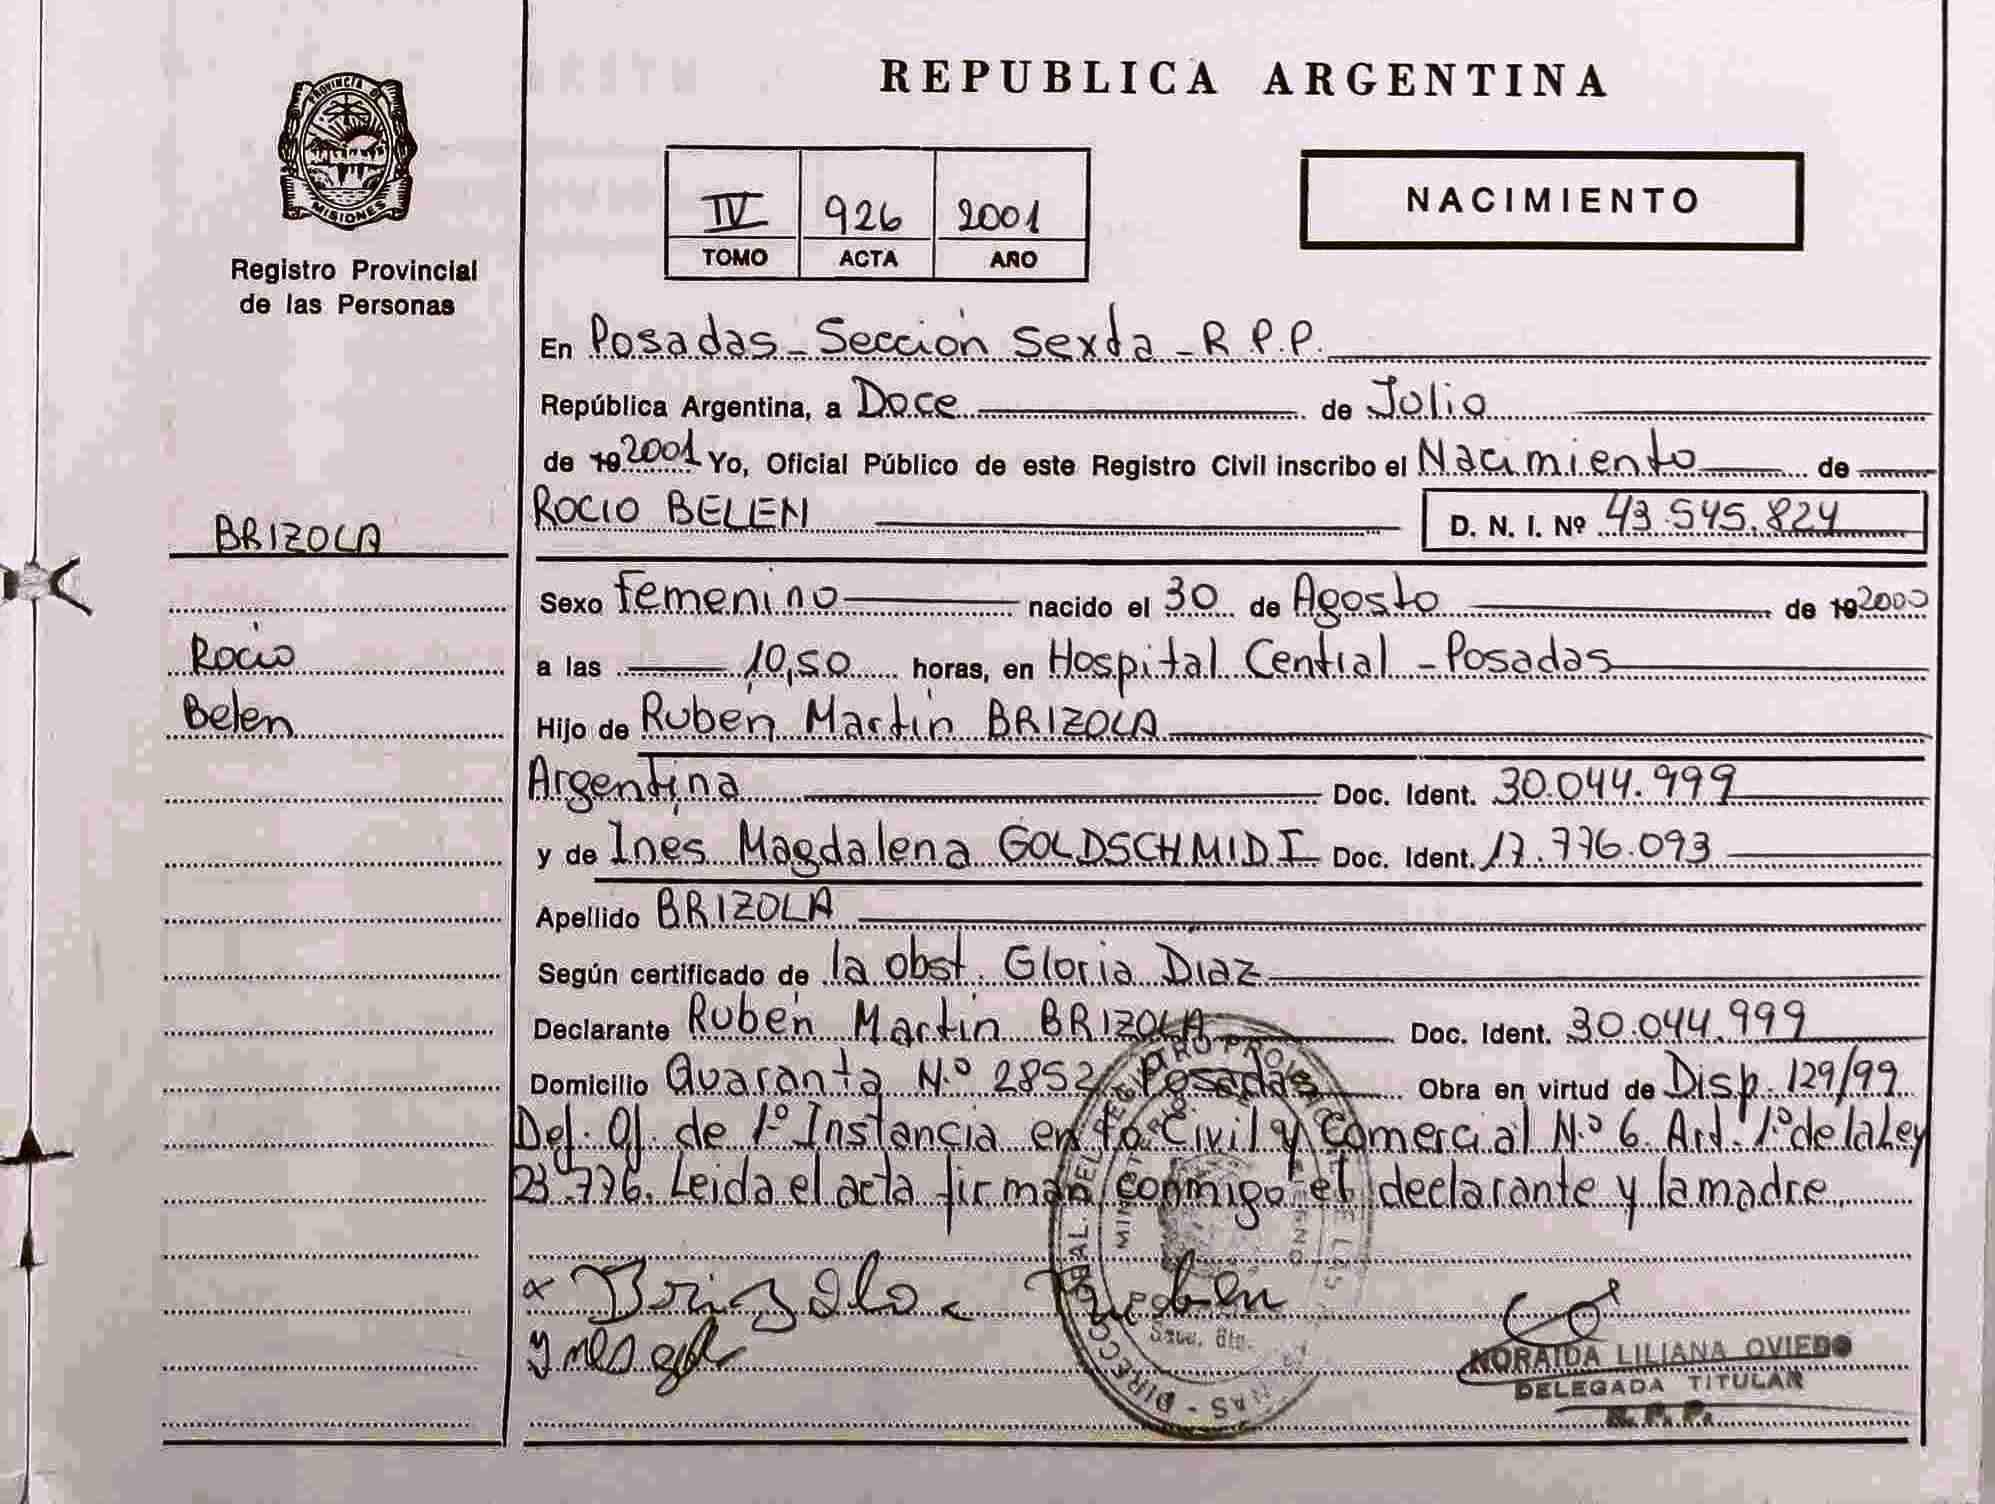 PROVINCIA DE
MISIONES
Registro Provincial
de las Personas
BRIZOLA
Rocio
Belen
REPUBLICA ARGENTINA
IV 926 2001
TOMO ACTA AÑO
NACIMIENTO
En Posadas - Sección Sexta - R.P.P.
República Argentina, a Doce de Julio
de 19 2001 Yo, Oficial Público de este Registro Civil inscribo el Nacimiento de
ROCIO BELEN D. N. I. Nº 43.545.824
Sexo Femenino nacido el 30 de Agosto de 19 2000
a las 10,50 horas, en Hospital Central - Posadas
Hijo de Rubén Martín BRIZOLA
Argentina Doc. Ident. 30.044.999
y de Inés Magdalena GOLDSCHMIDT Doc. Ident. 17.776.093
Apellido BRIZOLA
Según certificado de la obst. Gloria Díaz
Declarante Rubén Martín BRIZOLA Doc. Ident. 30.044.999
Domicilio Quaranta N.º 2852 Posadas Obra en virtud de Disp. 129/99
Def. Of. de 1º Instancia en lo Civil y Comercial N.º 6. Art. 1º de la Ley
23.776. Leida el acta firman conmigo el declarante y la madre
Brizola Rueben
Ines gol
NORAIDA LILIANA OVIEDO
DELEGADA TITULAR
R. P. P.